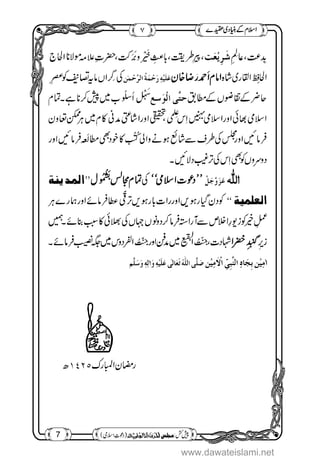 اسلام کے بنیادی عقیدے ۷
بدعت، عالمِ شَرِیْعَت، پیرِ طریقت، باعثِ خَیْر وبَرَکت، حضرتِ علامہ مولانا الحاج
الحافِظ القاری الشاہ امام اَحمد رَضا خان عَلَیْہِ رَحْمَۃُ الرَّحْمٰن کی گِراں مایہ تصانیف کو عصرِ
حاضر کے تقاضوں کے مطابق حتَّی الْوَسْعَ سَہْل اُسْلُوب میں پیش کرنا ہے۔ تمام
اسلامی بھائی اور اسلامی بہنیں اس عِلمی، تحقیقی اور اشاعتی مدنی کام میں ہر ممکن تعاون
فرمائیں اور مجلس کی طرف سے شائع ہونے والی کُتُب کا خود بھی مطالَعہ فرمائیں اور
دوسروں کو بھی اس کی ترغیب دلائیں۔
اللہ عَزَّوَجَلَّ ”دعوتِ اسلامی“ کی تمام مجالس بَشُمُول ”المدینۃ
العلمیۃ“ کو دن گیارہویں اور رات بارہویں ترقّی عطا فرمائے اور ہمارے ہر
عملِ خیر کو زیورِ اخلاص سے آراستہ فرما کر دونوں جہاں کی بھلائی کا سبب بنائے۔ ہمیں
زیرِ گنبدِ خضرا شہادت، جنّت البقیع میں مدفن اور جنّت الفردوس میں جگہ نصیب فرمائے۔
اٰمِیْن بِجَاہِ النَّبِیِّ الْاَمِیْن صَلَّی اللہُ تَعَالٰی عَلَیْہِ وَاٰلِہٖ وَسَلَّم
رمضان المبارک ۱۴۲۵ھ
7 پیش کش: مجلس (دعوتِ اسلامی)
www.dawateislami.net